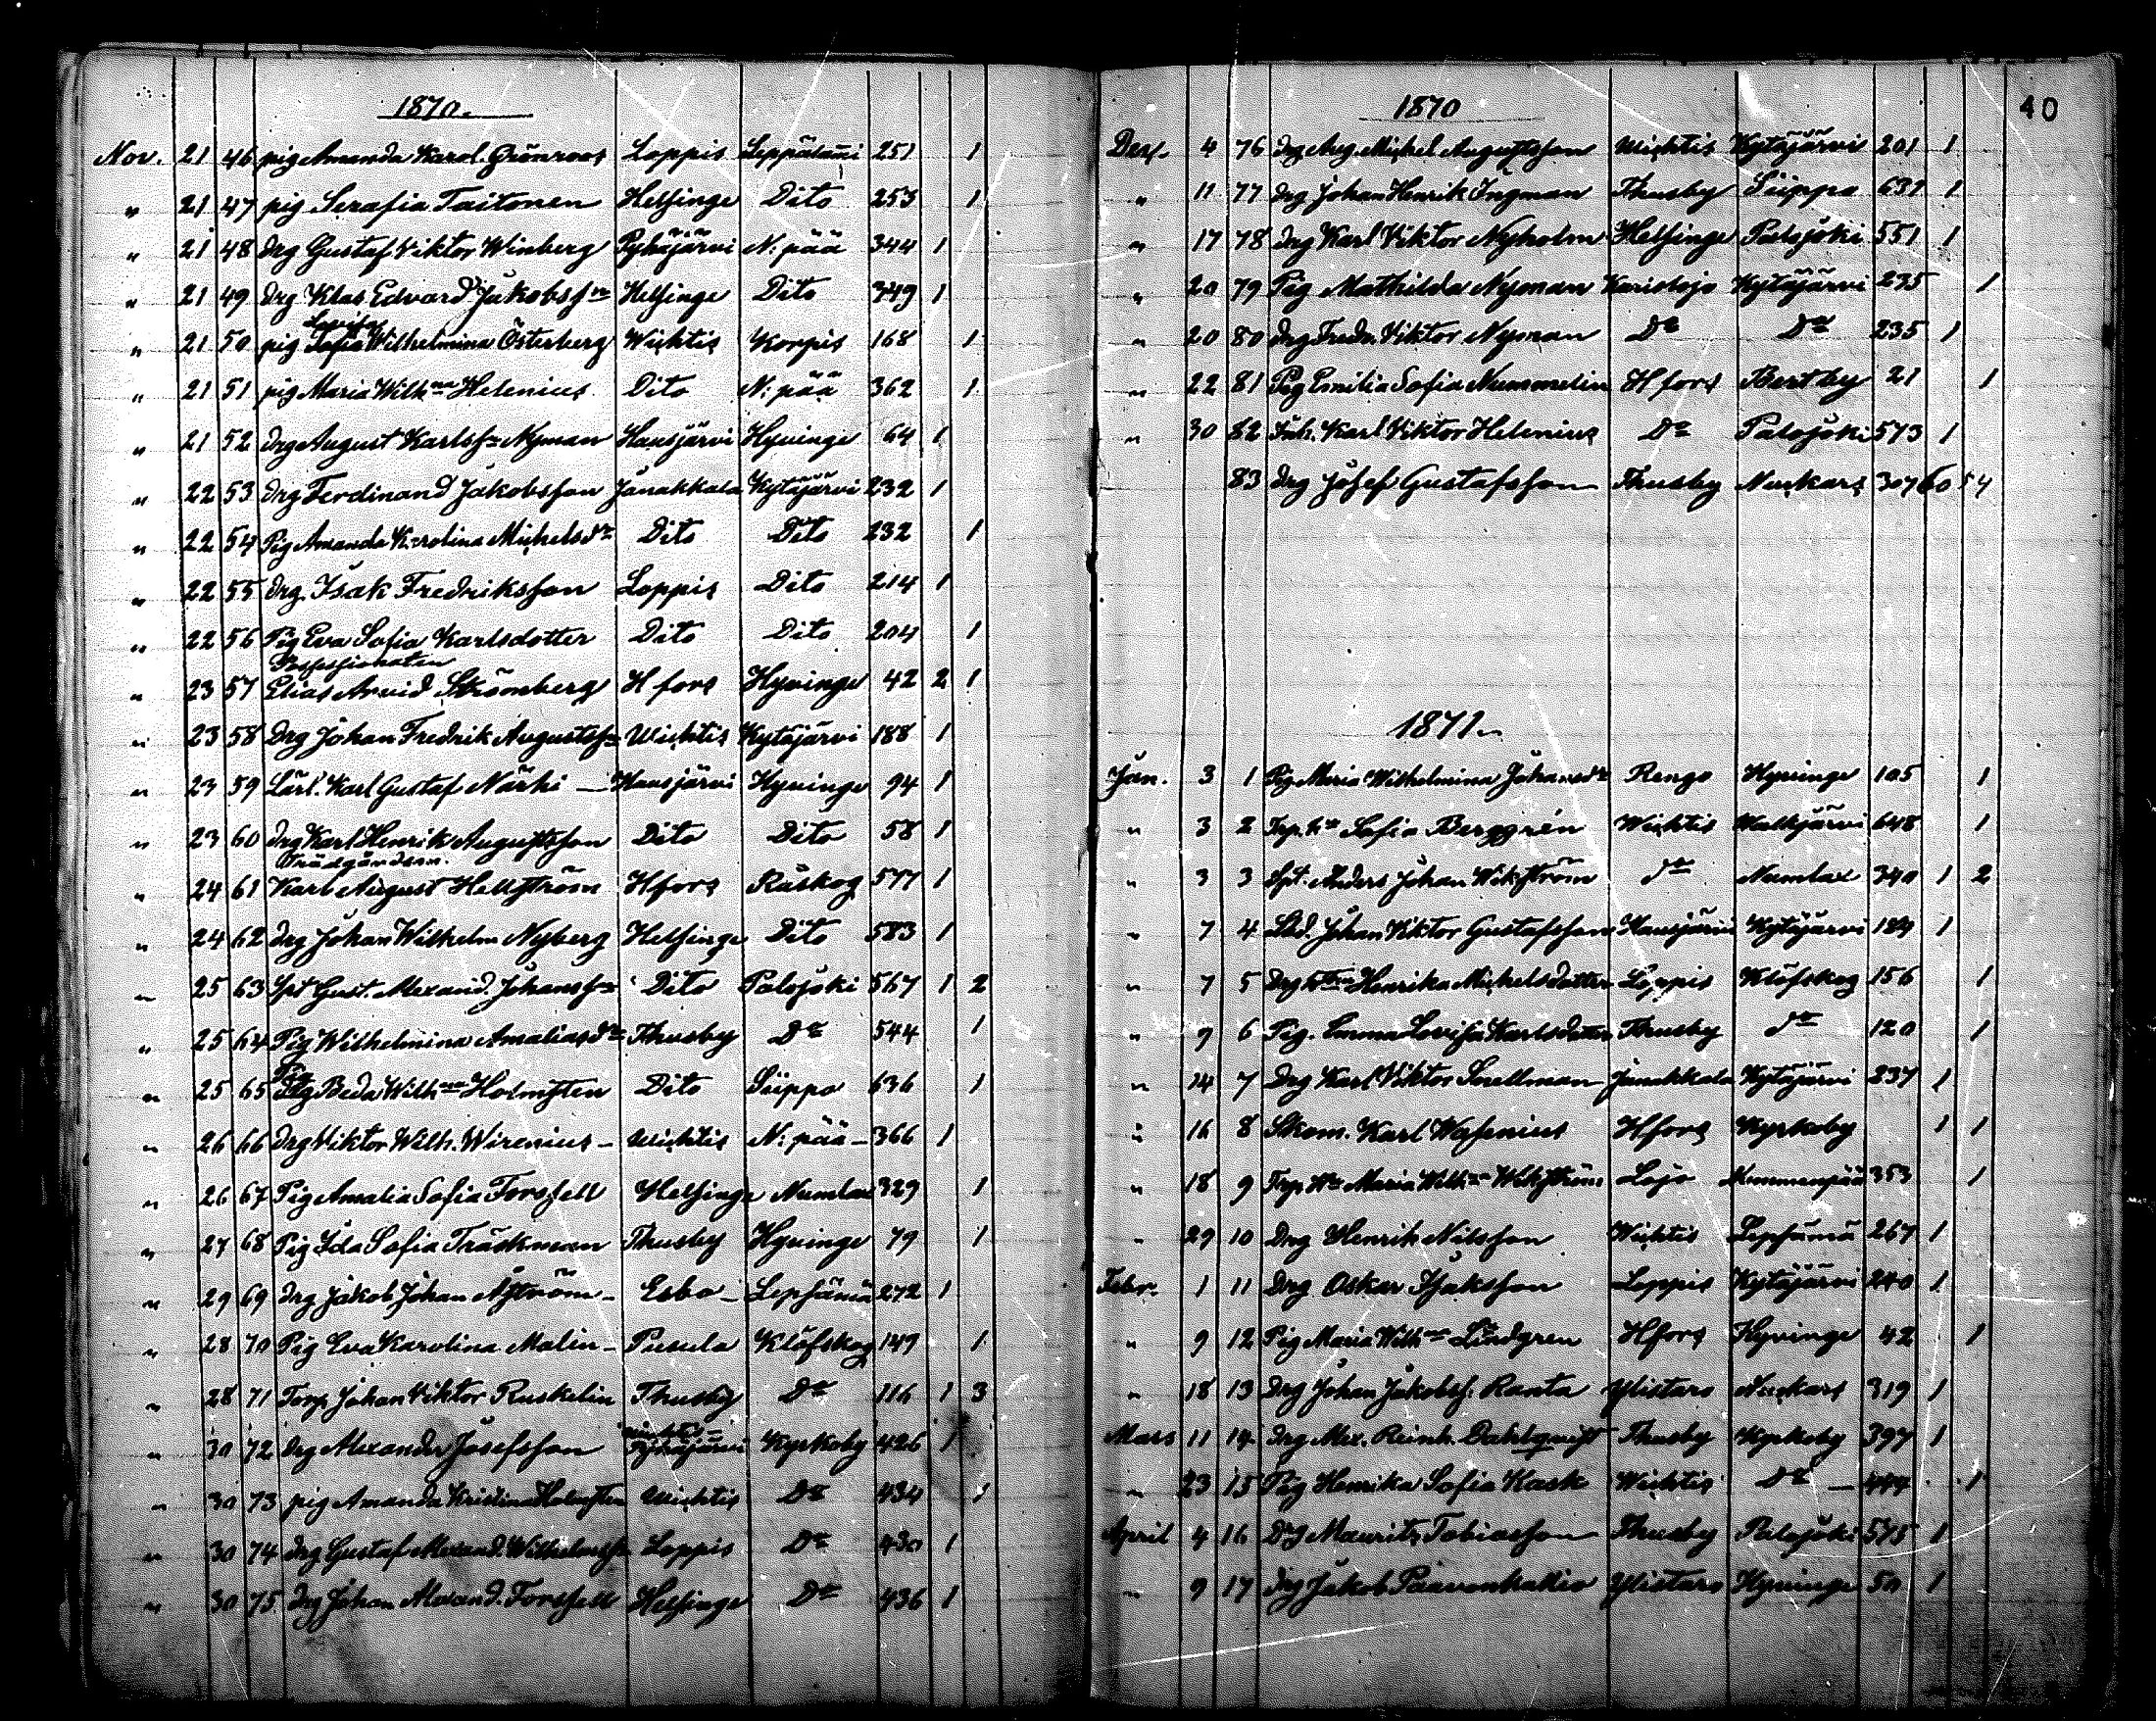 1870.
Nov. 21 46 pig Amanda Karol. Grönroos Loppis Leppälami 251 1
" 21 47 pig Serafia Taitonen Helsinge Dito 253 1
" 21 48 drg Gustaf Viktor Winberg Pyhäjärvi N:pää 344 1
" 21 49 drg Klas Edvard Jakobsson Helsinge Dito 349 1
Lovisa
" 21 50 pig Sofia Wilhelmina Österberg Wichtis Korpis 168 1
" 21 51 pig Maria Wilhna Helenius Dito N:pää 362 1
" 21 52 drg August Karlsfn Nyman Hausjärvi Hyvinge 64 1
" 22 53 drg Ferdinand Jakobsson Janakkala Kytäjärvi 232 1
" 22 54 Pig Amanda Karolina Michelsdr Dito Dito 232 1
" 22 55 drg. Isak Fredriksson Loppis Dito 214 1
" 22 56 Pig Eva Sofia Karlsdotter Dito Dito 204 1
Possessionaten
" 23 57 Elias Arvid Strömberg Hfors Hyvinge 42 2 1
" 23 58 Drg Johan Fredrik Augustsfn Wichtis Kytäjärvi 188 1
" 23 59 Lärl. Karl Gustaf Närhi Hausjärvi Hyvinge 94 1
" 23 60 drg Karl Henrik Augustsson Dito Dito 58 1
Trädgårdsm.
" 24 61 Karl August Hellström Hfors Råskog 577 1
" 24 62 drg Johan Wilhelm Nyberg Helsinge Dito 583 1
" 25 63 Spt Gust. Alexand. Johansfn Dito Palojoki 567 1 2
" 25 64 Pig Wilhelmina Amaliasdr Thusby Do 544 1
" 25 65 Pig Beda Wilhna Holmsten Dito Siippo 636 1
" 26 66 drg Viktor Wilh. Wirenius Wichtis N:pää 366 1
" 26 67 Pig Amalia Sofia Forssell Helsinge Numlax 329 1
" 27 68 Pig Ida Sofia Träskman Thusby Hyvinge 79 1
" 29 69 drg Jakob Johan Nyström Esbo Lepsämä 272 1
" 28 70 Pig Eva Karolina Malin Pusula Klöfskog 149 1
" 28 71 Torp. Johan Viktor Ruskelin Thusby Do 116 1 3
" 30 72 drg Alexander Josefsson Pyhäjärvi Kyrkoby 426 1
" 30 73 pig Amanda Kristina Holmsten Wichtis Do 434 1
" 30 74 drg Gustaf Alexand. Wilhelmsfn Loppis Do 430 1
" 30 75 drg Johan Alexand. Forssell Helsinge Do 436 1
40
1870
Dec. 4 76 drg Aug. Michel Augustsson Wichtis Kytäjärvi 201 1
" 11 77 drg Johan Henrik Ingman Thusby Siippo 631 1
" 17 78 drg Karl Viktor Nyholm Helsinge Palojoki 551 1
" 20 79 Pig Mathilda Nyman Karislojo Kytäjärvi 235 1
" 20 80 drg Fredr. Viktor Nyman Do Do 235 1
" 22 81 Pig Emilia Sofia Nummelin Hfors Bertby 21 1
" 30 82 Inh. Karl Viktor Helenius Do Palojoki 573 1
83 drg Josef Gustafsson Thusby Nurkars 307 60 54
1871.
Jan. 3 1 Pig Maria Wilhelmina Johansdr Rengo Hyvinge 105 1
" 3 2 Sofia Berggrén Wichtis Walkjärvi 648 1
" 3 3 Spt. Anders Johan Wikström do Numlax 340 1 2
" 7 4 Johan Viktor Gustafsson Hausjärvi Kytäjärvi 189 1
" 7 5 Henrika Michelsdotter Loppis Klöfskog 156 1
" 9 6 Pig. Emma Lovisa Karlsdotter Thusby do 120 1
" 14 7 Drg Karl Viktor Snellman Janakkala Kytäjärvi 237 1
" 16 8 Skom. Karl Wasenius Hfors Kyrkoby 1 1
" 18 9 Maria Wilhna Wikström Lojo Nummenpää 353 1
" 29 10 Drg Henrik Nilsson Wichtis Lepsämä 267 1
Febr. 1 11 Drg Oskar Isaksson Loppis Kytäjärvi 240 1
" 9 12 Pig Maria Wilhna Lindgren Hfors Hyvinge 42 1
" 18 13 Drg Johan Jakobsf. Ranta Ylistaro Nurkars 319 1
Mars 11 14 drg Alex. Reinh. Dahlqvist Thusby Kyrkoby 397 1
" 23 15 Pig Henrika Sofia Kask Wichtis Do 444 1
April 4 16 Drg Maurits Tobiasson Thusby Palojoki 575 1
" 9 17 drg Jakob Paavonkallio Ylistaro Hyvinge 50 1